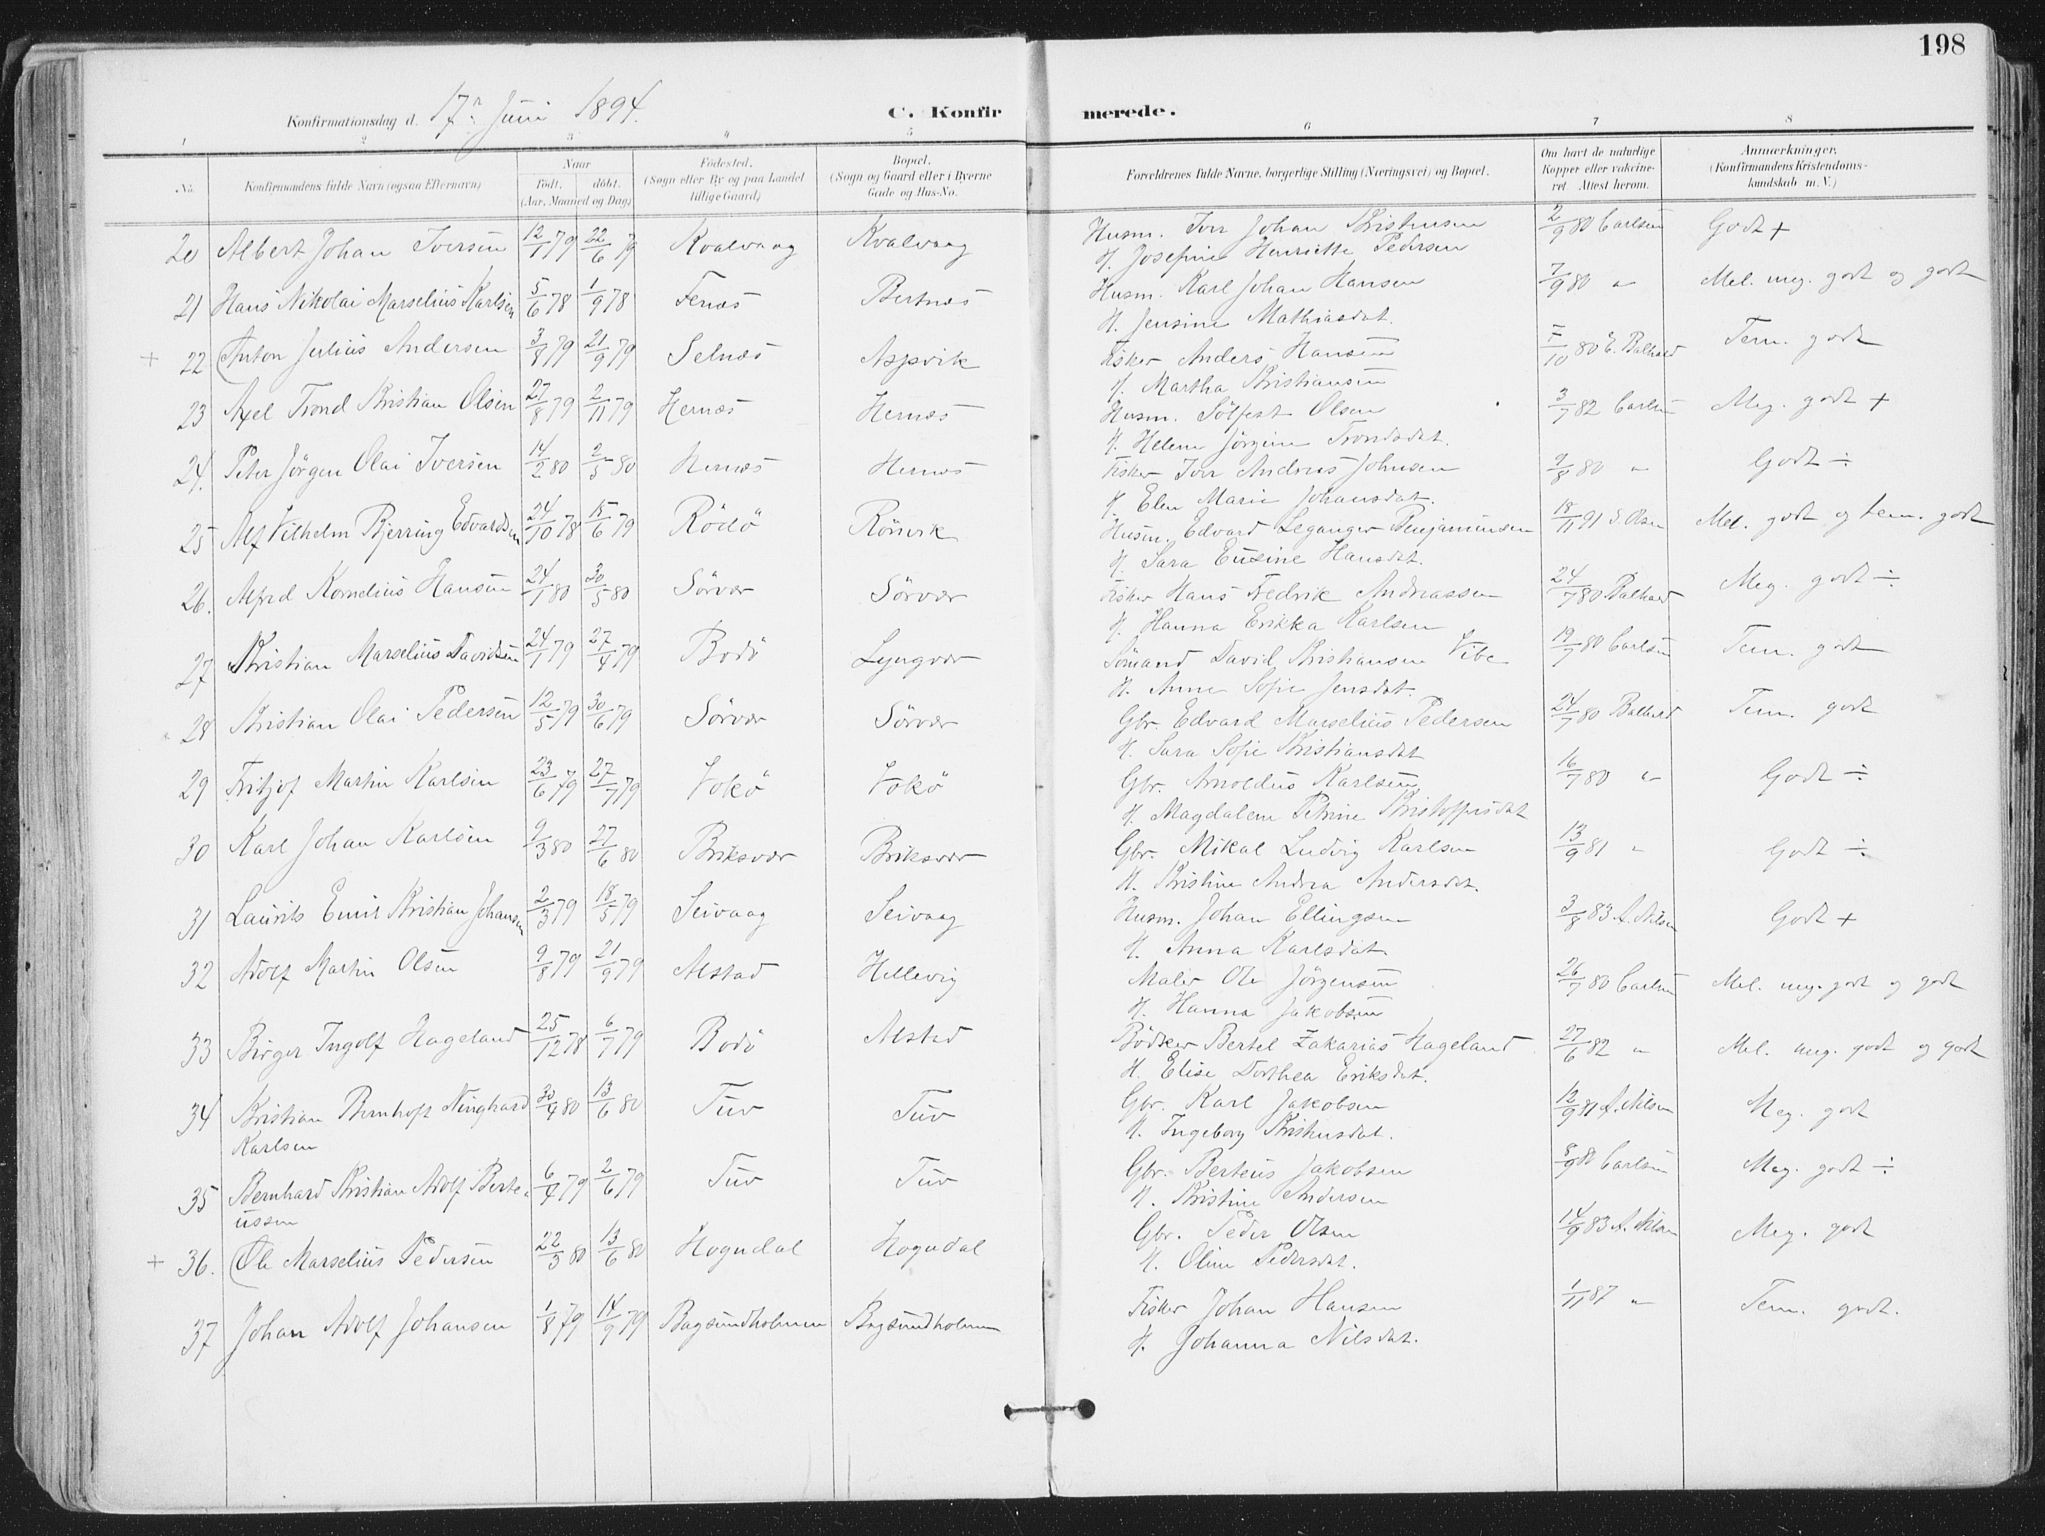 198
Konfirmationsdag d. 17de Juni 1894.
C. Konfirmerede.
1 2 3 4 5 6 7 8
No. Konfirmandens fulde Navn (ogsaa Efternavn) Naar Født. døbt. (Aar, Maaned og Dag) Fødested. (Sogn eller By og paa Landet tillige Gaard) Bopæl. (Sogn og Gaard eller i Byerne Gade og Hus-No. Forældrenes fulde Navne, borgerlige Stilling (Næringsvei) og Bopæl. Om havt de naturlige Kopper eller vakcineret. Attest herom. Anmærkninger. (Konfirmandens Kristendomskundskab m. V.)
20 Albert Johan Iversen 12/1 79 22/6 79 Kvalvaag Kvalvaag Husm. Iver Johan Kristensen 2/9 80 Carlsen Godt +
H. Josefine Henriette Pedersen
21 Hans Nikolai Marselius Karlsen 5/6 78 1/9 78 Fenæs Bertnæs Husm. Karl Johan Hansen 7/9 80 " Mel. meg. godt og godt
H. Jensine Mathiasdat.
+ 22 Anton Julius Andersen 3/8 79 21/9 79 Selnæs Aspvik Fisker Anders Hansen 7/10 80 E. Balhard Tem. godt
H. Martha Kristiansen
23 Axel Trond Kristian Olsen 27/8 79 2/11 79 Hernæs Hernæs Husm. Sølfest Olsen 3/7 82 Carlsen Meg. godt +
H. Helene Jørgine Trondsdat.
24. Peter Jörgen Olai Iversen 14/2 80 2/5 80 Hernæs Hernæs Fisker Iver Andreas Johnsen 9/8 80 " Godt ÷
H. Elen Marie Johansdat.
25 Alf Vilhelm Bjerring Edvardsen 24/10 78 15/6 79 Rödö Rönvik Husm. Edvard Leganger Benjaminsen 18/11 91 S. Olsen Mel. godt og tem. godt
H. Sara Eusine Hansdat.
26. Alfred Kornelius Hansen 24/1 80 30/5 80 Sörvær Sörvær Fisker Hans Fredrik Andreassen 24/7 80 Balhard Meg. godt ÷
H. Hanna Erikka Karlsen
27 Kristian Marselius Davidsen 24/1 79 27/4 79 Bodö Lyngvær Sömand David Kristiansen Vibe 19/7 80 Carlsen Tem. godt
H. Anne Sofie Jensdat.
28 Kristian Olai Pedersen 12/5 79 30/6 79 Sörvær Sörvær Gbr. Edvard Marselius Pedersen 24/7 80 Balhard Tem. godt
H. Sara Sofie Kristiansdat
29 Fritjof Martin Karlsen 23/6 79 27/7 79 Vokö Vokö Gbr. Arnoldus Karlsen 16/7 80 " Godt ÷
H. Magdalene Petrine Kristoffersdat
30 Karl Johan Karlsen 9/3 80 27/6 80 Briksvær Briksvær Gbr. Mikal Ludvig Karlsen 13/9 81 " Godt ÷
H. Kristine Andrea Andersdat.
31 Laurits Emil Kristian Johansen 2/3 79 18/5 79 Seivaag Seivaag Husm. Johan Ellingsen 3/8 83 A. Nilsen Godt +
H. Anna Karlsdat.
32 Adolf Martin Olsen 9/8 79 21/9 79 Alstad Hellevig Maler Ole Jörgensen 26/7 80 Carlsen Mel. meg. godt og godt
H. Hanna Jakobsen
33 Birger Ingolf Hageland 25/12 78 6/7 79 Bodö Alstad Bödker Bertel Zakarias Hageland 27/6 82 " Mel. meg. godt og godt
H. Elise Dorthea Eriksdat.
34 Kristian Bernhoft Ninghard 30/4 80 13/6 80 Tuv Tuv Gbr. Karl Jakobsen 12/9 81 A. Nilsen Meg. godt
Karlsen H. Ingeborg Kristensdat.
35 Bernhard Kristian Adolf Berte- 6/4 79 2/6 79 Tuv Tuv Gbr. Berteus Jakobsen 8/9 80 Carlsen Meg. godt ÷
ussen H. Kristine Andersen
+ 36. Ole Marselius Pedersen 22/3 80 13/6 80 Hogndal Hogndal Gbr. Peder Olsen 14/9 83 A. Nilsen Meg. godt
H. Oline Pedersdat.
37 Johan Adolf Johansen 1/8 79 14/9 79 Bagsundholmen Bagsundholmen Fisker Johan Hansen 1/11 87 " Tem. godt.
H. Johanna Nilsdat.